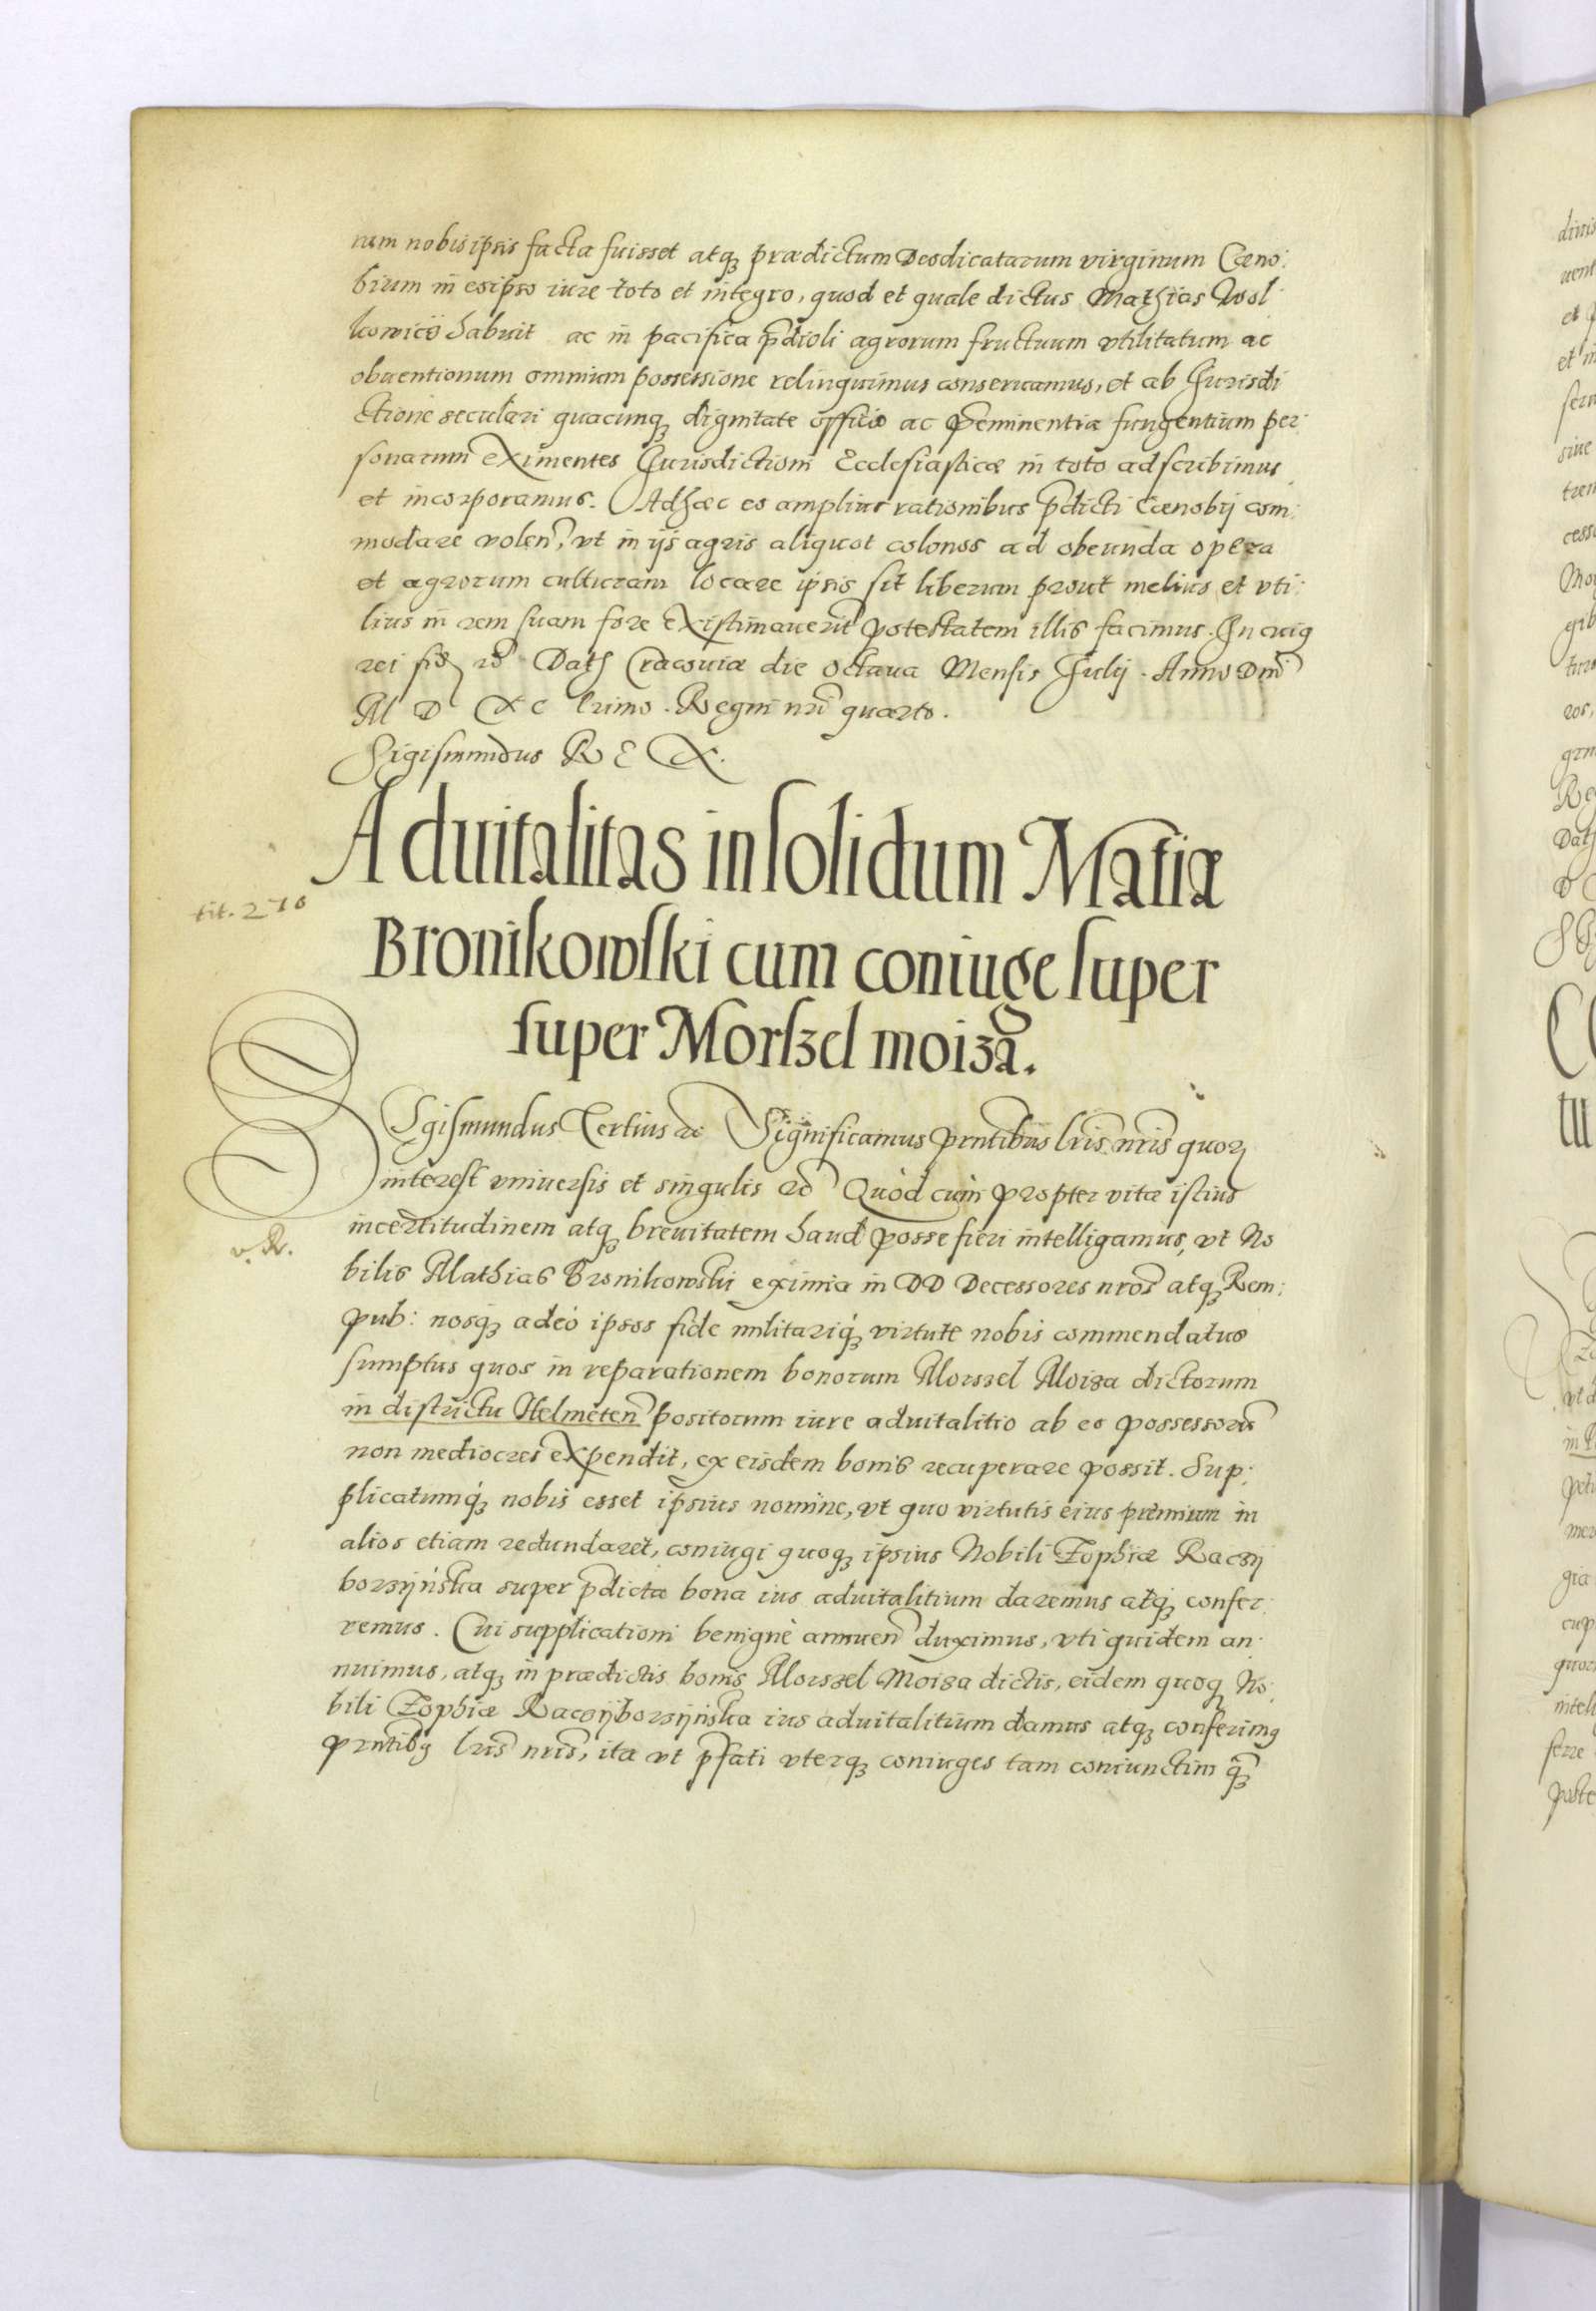 rum nobis ipsis facta fuisset atq; prædictum Deodicatarum virginum Cœno:
bium in eoipso iure toto et integro, quod et quale dictus Mathias Wol
kowicz habuit ac in pacifica pdioli agrorum fructuum vtilitatum ac
obuentionum omnium possessione relinquimus conseruamus, et ab Jurisdi
ctione seculari quacunq; dignitate officio ac pemìnentia fungentium per:
sonarum eximentes Jurisdictioni Ecclesiasticæ in toto adscribimus
et incorporamus. Adhæc eo amplius rationibus pdicti Cœnobij com:
modare volen, vt in ijs agris aliquot colonos ad obeunda opera
et agrorum culturam locare ipsis sit liberum prout melius et vti:
lius in rem suam fore existimauerit potestatem illis facimus. In cuig
rei fid rc Dath Cracouiæ die octaua Mensis Julij. Anno Dni
M D XC primo. Regni nri quarto.
Sigismundus REX.
Aduitalitas insolidum Matiæ
Bronikowski cum coniuge super
super Morszel moiza.
tit. 270
Sgismundus Tertius rc Significamus pntibus lris nris quor
interest vniuersis et singulis rc Quòd cùm propter vitæ istius
incertitudinem atq; breuitatem haud posse fieri intelligamus, vt No
v. R.
bilis Mathias Bronikowski eximia in DD Decessores nros atq; Rem:
pub: nosq; adeò ipsos fide militariq; virtute nobis commendatus
sumptus quos in reparationem bonorum Morszel Moiza dictorum
in districtu Helmeten positorum iure aduitalitio ab eo possessoru
non mediocres expendit, ex eisdem bonis recuperare possit. Sup:
plicatumq; nobis esset ipsius nomine, vt quo virtutis eius premium in
alios etiam redundaret, coniugi quoq; ipsius Nobili Zophiæ Raczÿ
borzÿńska super pdicta bona ius aduitalitium daremus atq; confer:
remus. Cui supplicationi benignè annuen duximus, vti quidem an:
nuimus, atq; in prædictis bonis Morszel Moiza dictis, eidem quoq; No:
bili Zophiæ Raczÿborzÿńska ius aduitalitium damus atq; conferimg
pntibg lris nris, ita vt pfati vterq; coniuges tam coniunctim q;